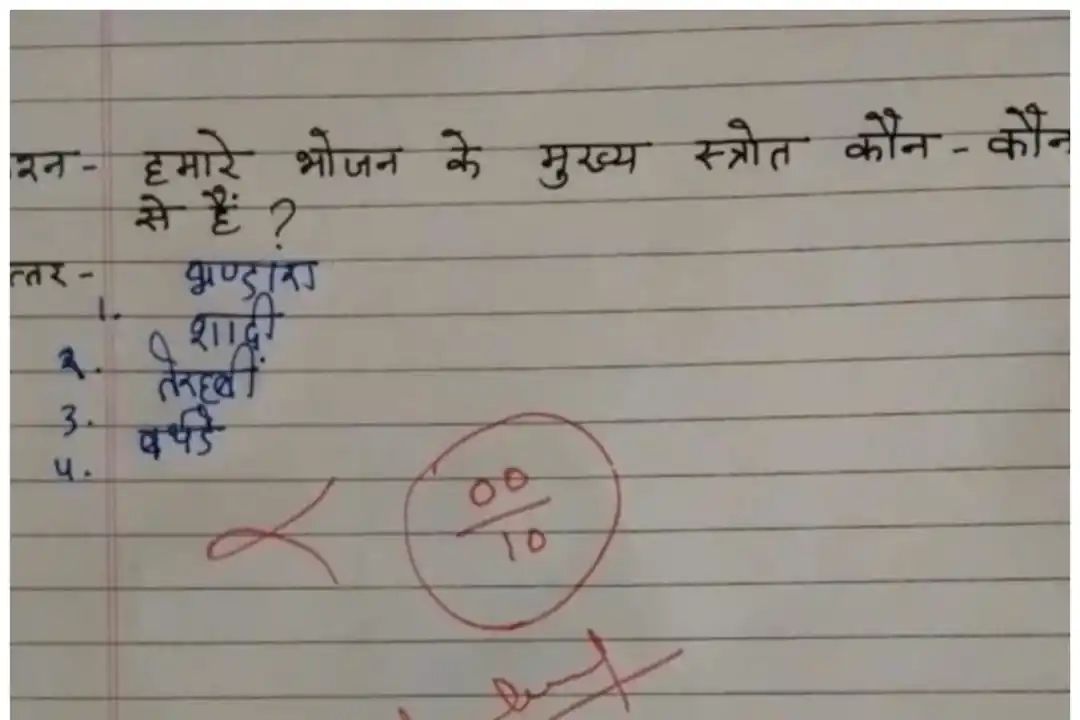 रन- हमारे भोजन के मुख्य स्त्रोत कौन - कौन
से हैं ?
त्तर-
1. भण्डारा
2. शादी
3. तेरहवीं
4. बर्थडे
00
10